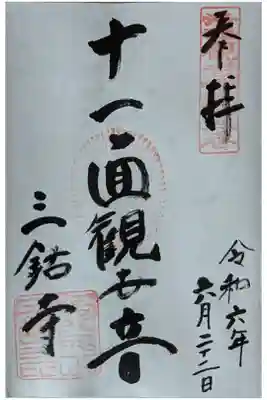 奉拝
令和六年
六月二十二日
十一面観世音
三鈷寺